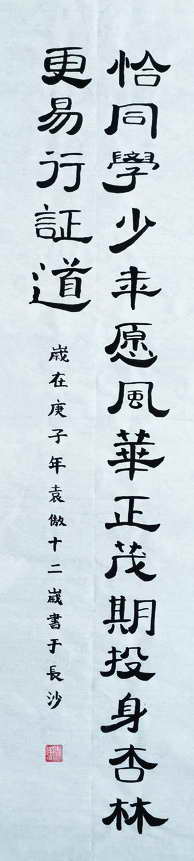 恰同學少年愿風華正茂期投身杏林
更易行証道
歲在庚子年袁倣十二歲書于長沙